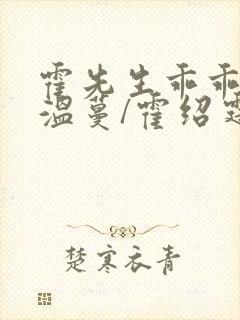 霍先生乖乖
温蔓/霍绍
楚寒衣青